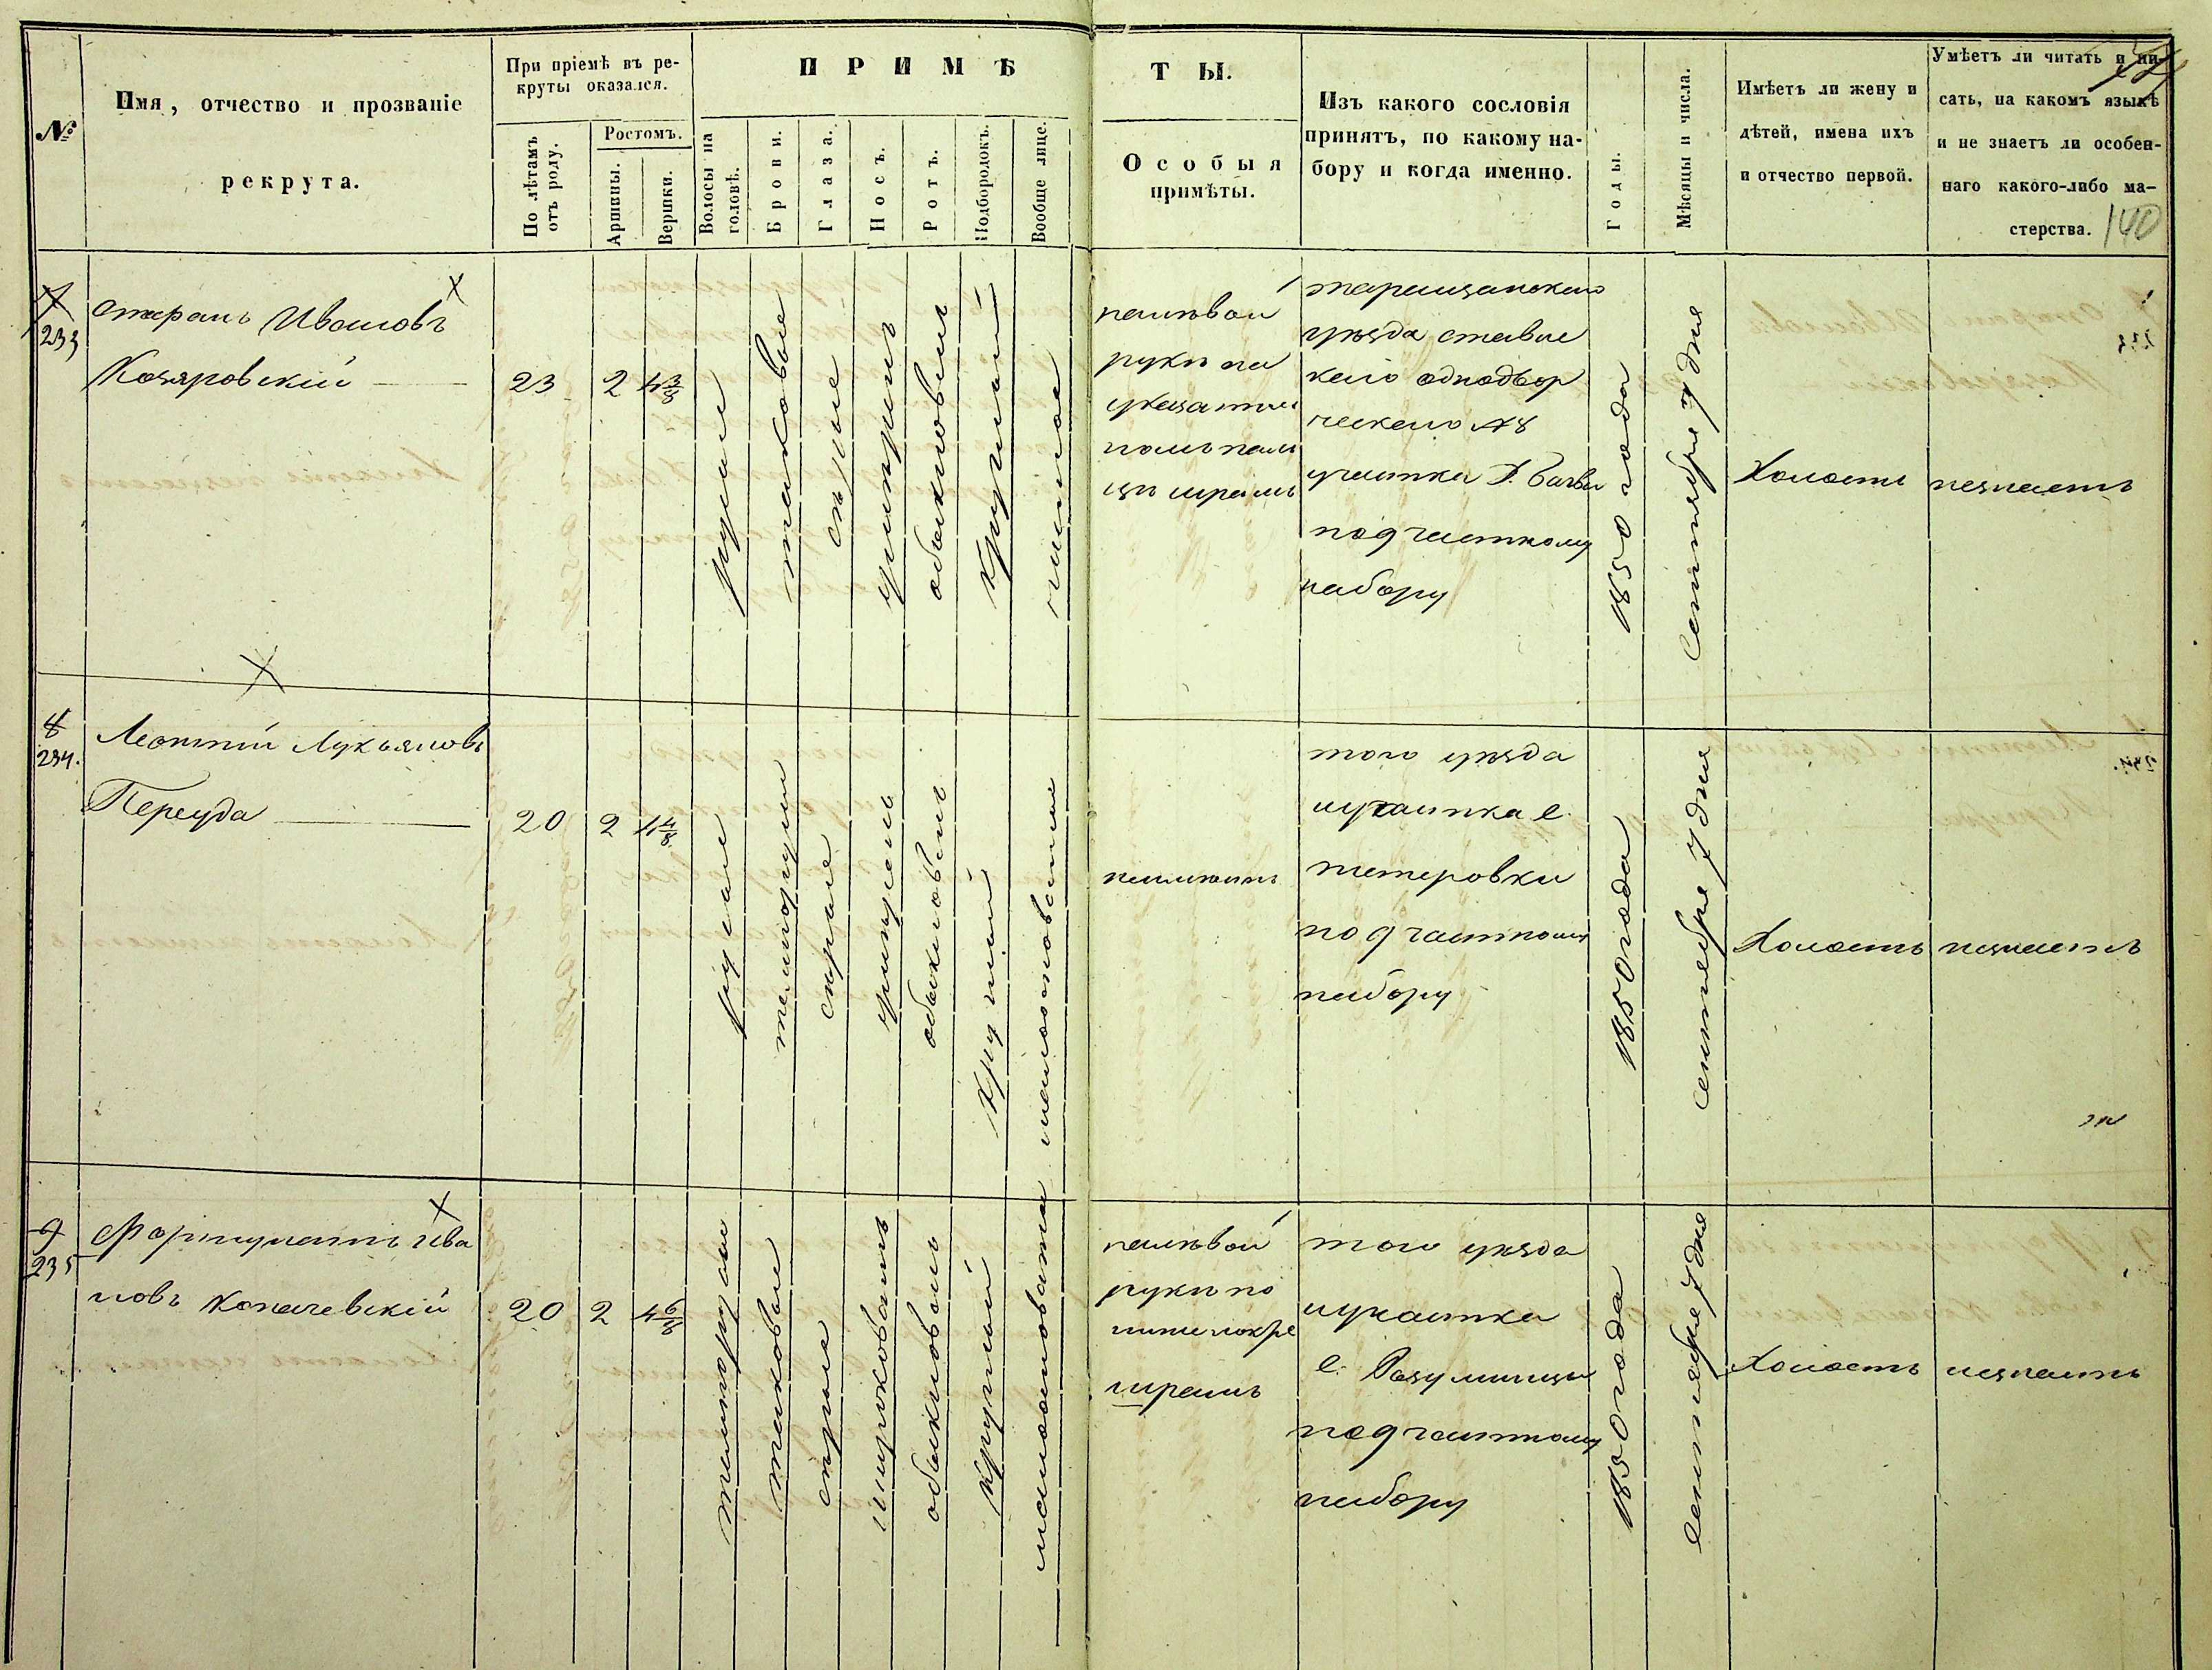 140
№
Имя, отчество и прозваніе
рекрута.
При пріемѣ въ ре-
круты оказался.
По лѣтамъ
отъ роду.
Ростомъ.
Аршины.
Вершки.
ПРИМѢТЫ.
Волосы на
головѣ.
Брови.
Глаза.
Носъ.
Ротъ.
Подбородокъ.
Вообще лице.
Особыя
примѣты.
Изъ какого сословія
принятъ, по какому на-
бору и когда именно.
Годы.
Мѣсяцы и числа.
Имѣетъ ли жену и
дѣтей, имена ихъ
и отчество первой.
Умѣетъ ли читать и пи-
сать, на какомъ языкѣ
и не знаетъ ли особен-
наго какого-либо ма-
стерства.
7
233
Ивановъ
Козяровскій
23
2
4 3/8
русые
таковые
сѣрые
обыкновенъ
круглый
чистое
налѣвой
рукѣ на
шрамъ
таращанскаго
уѣзда ставис
каго однодвор
ческаго №8
участка
под частному
набору
1850 года
Сентября 7 дня
Холостъ
незнаетъ
8
234.
Леонтій Лукьяновъ
Переуда
20
2
4 4/8
русые
темнорусые
сѣрые
обыкновенъ
круглый
неимѣетъ
того уѣзда
иучастка с.
тетеровки
под частному
набору
1850 года
Сентября 7 дня
Холостъ
незнаетъ
9
235
Фортунатъ Ива
новъ Копачевскій
20
2
4 6/8
темнорусые
таковые
сѣрые
широковатъ
обыкновенъ
круглый
налѣвой
рукѣ по
шрамъ
того уѣзда
иучастка
с. Разумницы
под частному
набору
1850 года
Сентября 7 дня
Холостъ
незнаетъ